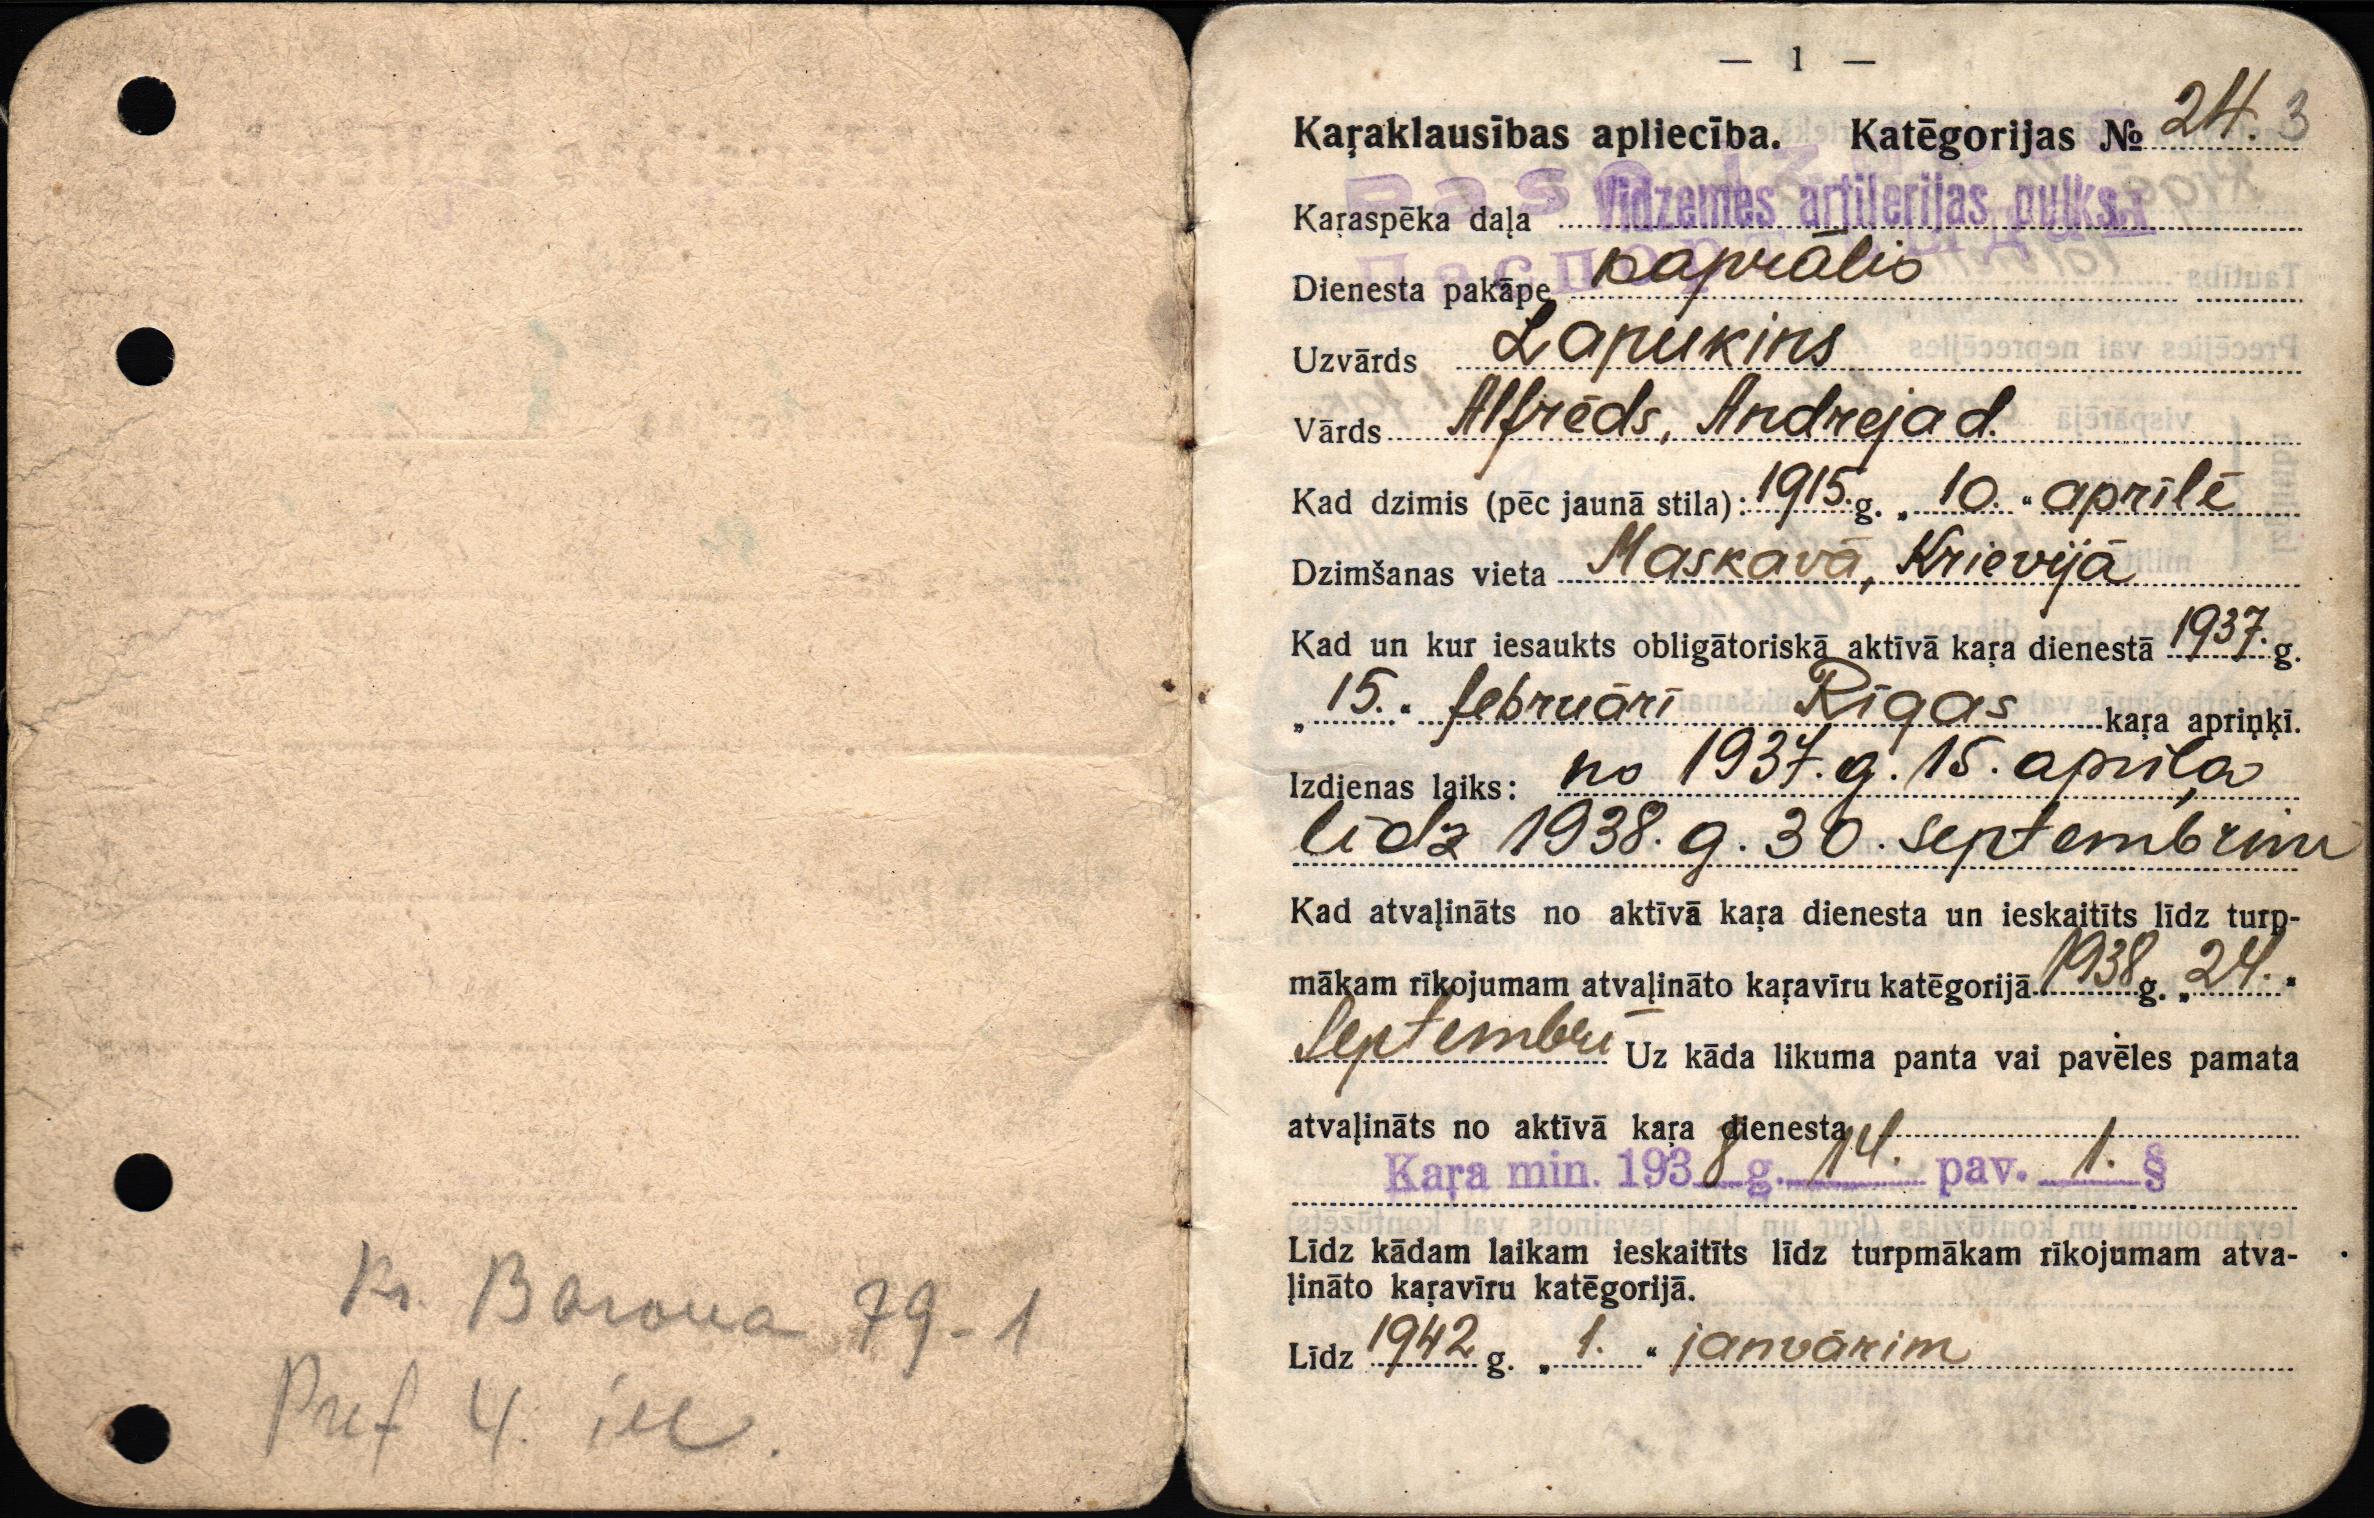 Kr. Barona 79-1
Pref 4. iec.
— 1 —
Kaŗaklausības apliecība. Katēgorijas № 24. 3
Pase izdota
Паспорт выдан
Kaŗaspēka daļa Vidzemes artilerijas pulks.
Dienesta pakāpe kaprālis
Uzvārds Lapukins
Vārds Alfrēds, Andreja d.
Kad dzimis (pēc jaunā stila): 1915. g. „ 10. “ aprīlē
Dzimšanas vieta Maskavā, Krievijā
Kad un kur iesaukts obligātoriskā aktīvā kaŗa dienestā 1937. g.
„ 15. “ februārī Rīgas kaŗa apriņķī.
Izdienas laiks: no 1937. g. 15. apriļa
līdz 1938. g. 30. septembrim
Kad atvaļināts no aktīvā kaŗa dienesta un ieskaitīts līdz turp-
mākam rīkojumam atvaļināto kaŗavīru katēgorijā 1938 g. „ 24. “
septembrī Uz kāda likuma panta vai pavēles pamata
atvaļināts no aktīvā kaŗa dienesta
Kaŗa min. 1938 g. 14. pav. 1. §
Līdz kādam laikam ieskaitīts līdz turpmākam rīkojumam atva-
ļināto kaŗavīru katēgorijā.
Līdz 1942 g. „ 1. “ janvārim